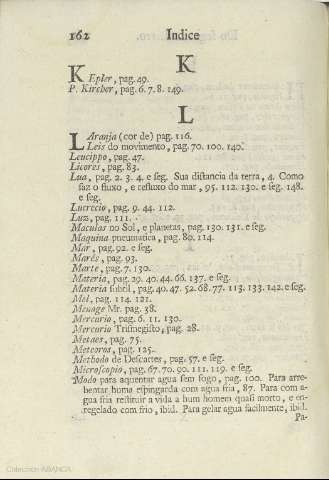 162 Indice
K
KEpler, pag. 49.
P. Kircher, pag. 6. 7. 8. 149.
L
LAranja (cor de) pag. 116.
Leis do movimento, pag. 70. 100. 140.
Leucippo, pag. 47.
Licores, pag. 83.
Lua, pag. 2. 3. 4. e ſeg. Sua diſtancia da terra, 4. Como
faz o fluxo, e refluxo do mar, 95. 112. 130. e ſeg. 148.
e ſeg.
Lucrecio, pag. 9. 44. 112.
Luz, pag. 111.
Maculas no Sol, e planetas, pag. 130. 131. e ſeg.
Maquina pneumatica, pag. 80. 114.
Mar, pag. 92. e ſeg.
Marés, pag. 93.
Marte, pag. 7. 130.
Materia, pag. 29. 40. 44. 66. 137. e ſeg.
Materia ſubtil, pag. 40. 47. 52. 68. 77. 113. 133. 142. e ſeg.
Mel, pag. 114. 121.
Menage Mr. pag. 38.
Mercurio, pag. 6. 11. 130.
Mercurio Triſmegiſto, pag. 28.
Metaes, pag. 75.
Meteoros, pag. 125.
Methodo de Deſcartes, pag. 57. e ſeg.
Microſcopio, pag. 67. 70. 90. 111. 119. e ſeg.
Modo para aquentar agua ſem fogo, pag. 100. Para arre-
bentar huma eſpingarda com agua fria, 87. Para com a-
gua fria reſtituir a vida a hum homem quaſi morto, e en-
regelado com frio, ibid. Para gelar agua facilmente, ibid.
Pa-
Colección ABANCA